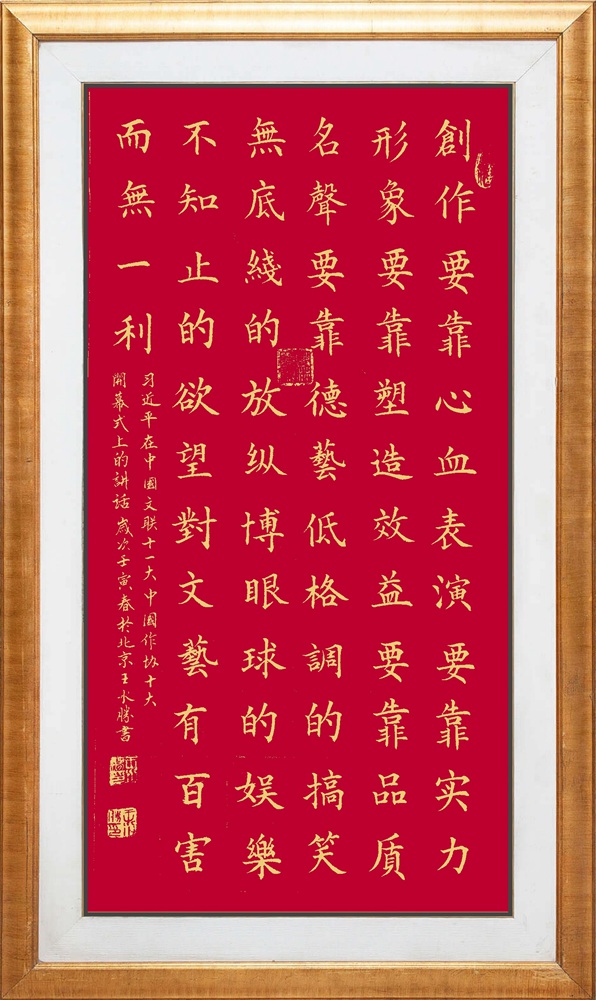 創作要靠心血表演要靠实力
形象要靠塑造效益要靠品质
名聲要靠德藝低格調的搞笑
無底綫的放纵博眼球的娱樂
不知止的欲望對文藝有百害
而無一利
习近平在中國文联十一大中國作协十大
開幕式上的講话 歲次壬寅春於北京王水勝書